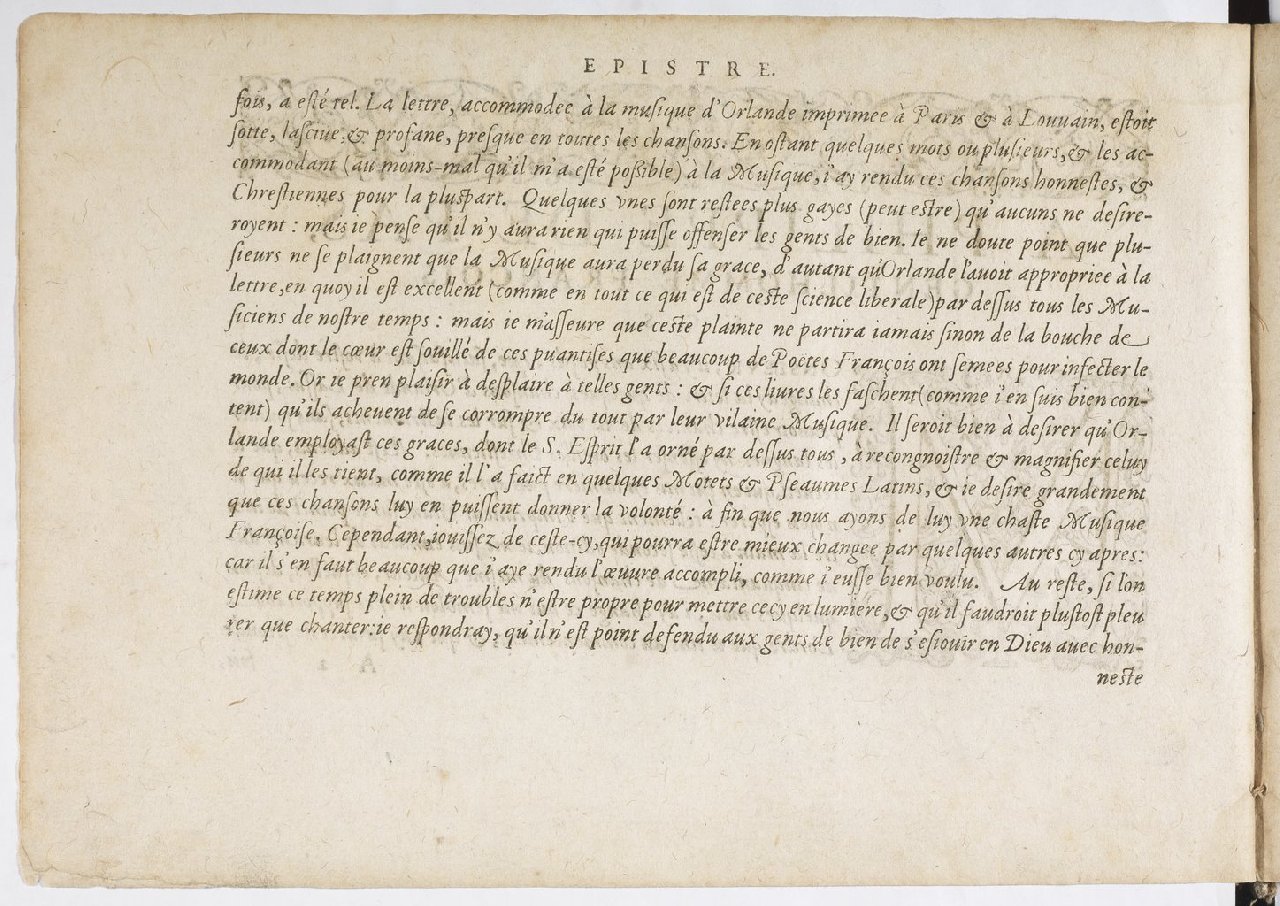 EPISTRE.
fois, a esté tel. La lettre, accommodee à la musique d'Orlande imprimee à Paris & à Louvain, estoit
sotte, lasciue & profane, presque en toutes les chansons. En ostant quelques mots ou plusieurs, & les ac-
commodant (au moins-mal qu'il m'a esté possible) à la Musique, i'ay rendu ces chansons honnestes, &
Chrestiennes pour la pluspart. Quelques vnes sont restees plus gayes (peut estre) qu'aucuns ne desire-
royent : mais ie pense qu'il n'y aura rien qui puisse offenser les gents de bien. Ie ne doute point que plu-
sieurs ne se plaignent que la Musique aura perdu sa grace, d'autant qu'Orlande l'avoit appropriee à la
lettre, en quoy il est excellent (comme en tout ce qui est de ceste science liberale) par dessus tous les Mu-
siciens de nostre temps : mais ie m'asseure que ceste plainte ne partira iamais sinon de la bouche de
ceux dont le cœur est souillé de ces puantises que beaucoup de Poetes François ont semees pour infecter le
monde. Or ie pren plaisir à desplaire à telles gents : & si ces liures les faschent (comme i'en suis bien con-
tent) qu'ils acheuent de se corrompre du tout par leur vilaine Musique. Il seroit bien à desirer qu'Or-
lande employast ces graces, dont le S. Esprit l'a orné par dessus tous, à recongnoistre & magnifier celuy
de qui il les tient, comme il l'a faict en quelques Motets & Pseaumes Latins, & ie desire grandement
que ces chansons luy en puissent donner la volonté : à fin que nous ayons de luy vne chaste Musique
Françoise. Cependant, iouissez de ceste-cy, qui pourra estre mieux changee par quelques autres cy apres:
car il s'en faut beaucoup que i'aye rendu l'œuure accompli, comme i'eusse bien voulu. Au reste, si l'on
estime ce temps plein de troubles n'estre propre pour mettre cecy en lumiere, & qu'il faudroit plustost pleu
rer que chanter: ie respondray, qu'il n'est point defendu aux gents de bien de s'esiouir en Dieu auec hon-
neste